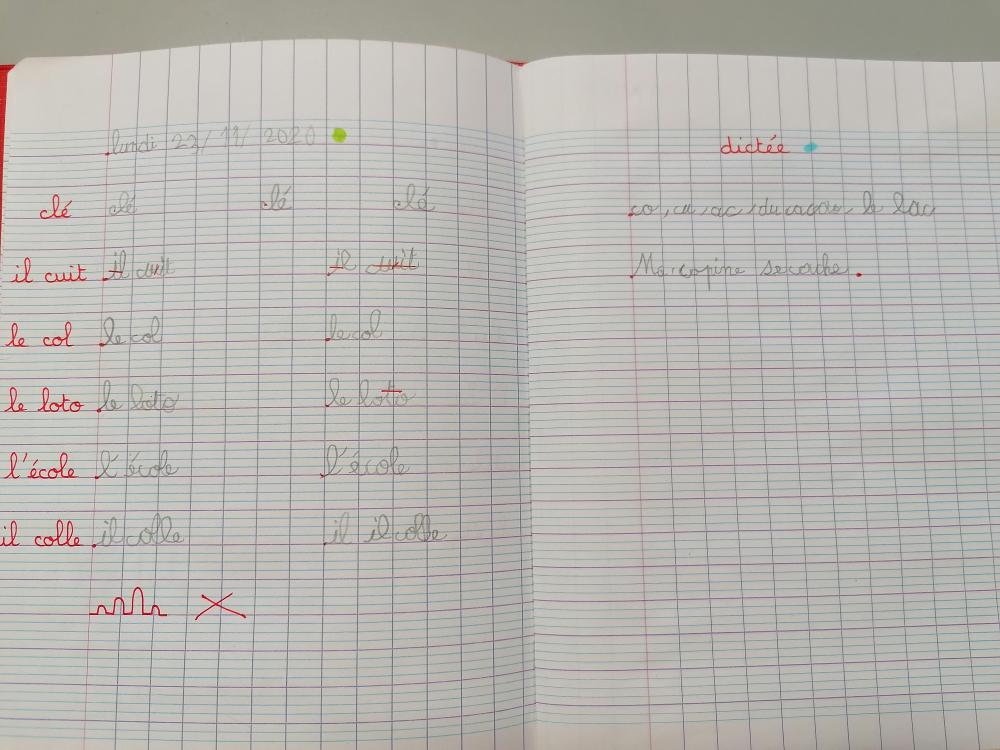 lundi 23/11/2020
clé clé clé clé
il cuit il cuit il cuit
le col le col le col
le loto le loto le loto
l'école l'école l'école
il colle il colle il il colle
dictée
co, cu, ac, du cacao, le lac
Ma copine se cache.